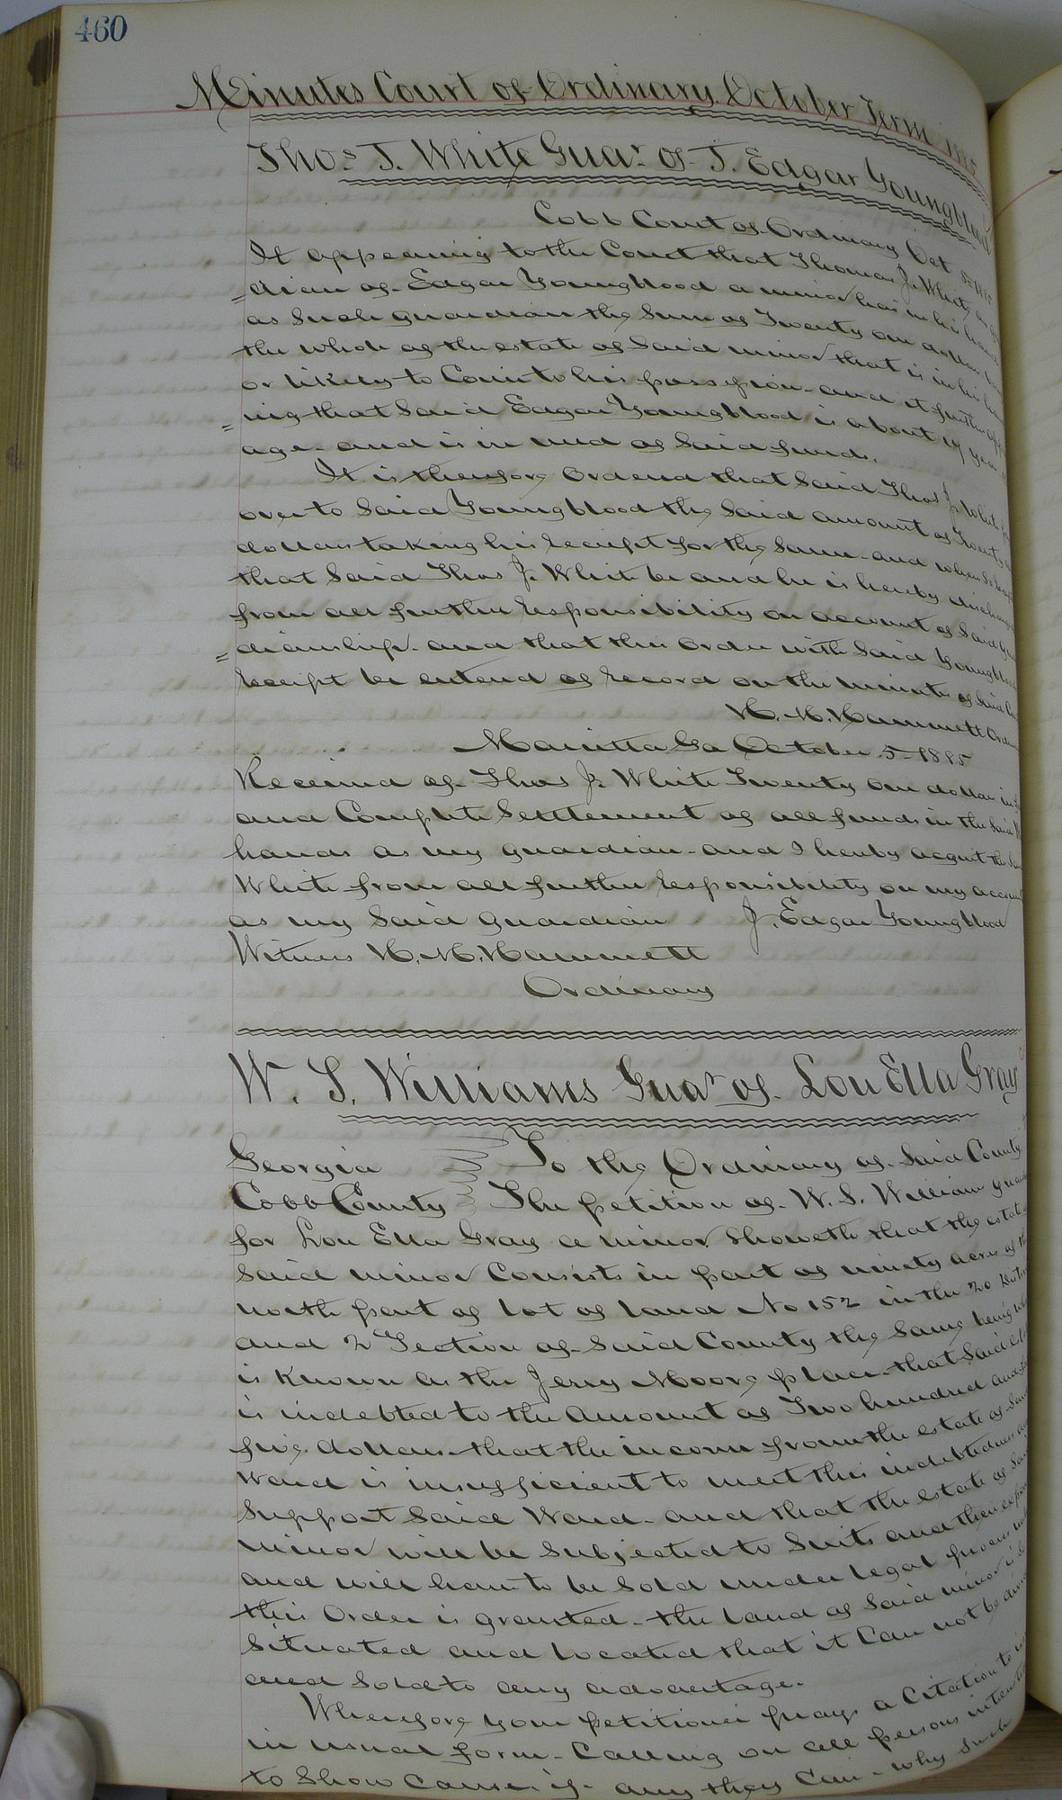 460
Minutes Court of Ordinary October Term 1885
Thos. J. White Guar. of J. Edgar Youngblood
Cobb Court of Ordinary Oct 5 1885
It appearing to the Court that Thomas J. White as
dian of Edgar Youngblood a minor has in his hands
as such guardian the sum of Twenty one dollars
the whole of the estate of said minor that is in his
or likely to come to his possession and it further
ing that said Edgar Youngblood is about 19 years
age and is in need of said funds.
It is therefore ordered that said Thos J. White
over to said Youngblood the said amount of Twenty
dollars taking his receipt for the same and when
that said Thos J. White be and he is hereby
from all further responsibility on account of said
dianship and that this order with said Youngblood
receipt be entered of record on the minutes of said
H. M. Hammett
Marietta Ga October 5 1885
Received of Thos J. White Twenty one dollars in
and Complete Settlement of all funds in the said
hands as my guardian and I hereby acquit the
White from all further responsibility on my account
as my said guardian J. Edgar Youngblood
Witness H. M. Hammett
Ordinary
W. S. Williams Guar of Lou Ella Gray
Georgia To the Ordinary of said County
Cobb County The petition of W. S. Williams
for Lou Ella Gray a minor showeth that the estate
said minor Consists in part of ninety acres of
north part of lot of land No 152 in the 20
and 2 Section of said County the same being
is known as the Jerry Moore place that said
is indebted to the amount of Two hundred and
five dollars that the income from the estate of
ward is insufficient to meet this indebtedness
support said Ward and that the estate of said
minor will be subjected to suits and then
and will have to be sold under legal process
this order is granted the land of said minor is
situated and located that it can not be
and sold to any advantage.
Wherefore your petitioner prays a Citation to
in usual form Calling on all persons
to show cause if any they can why such